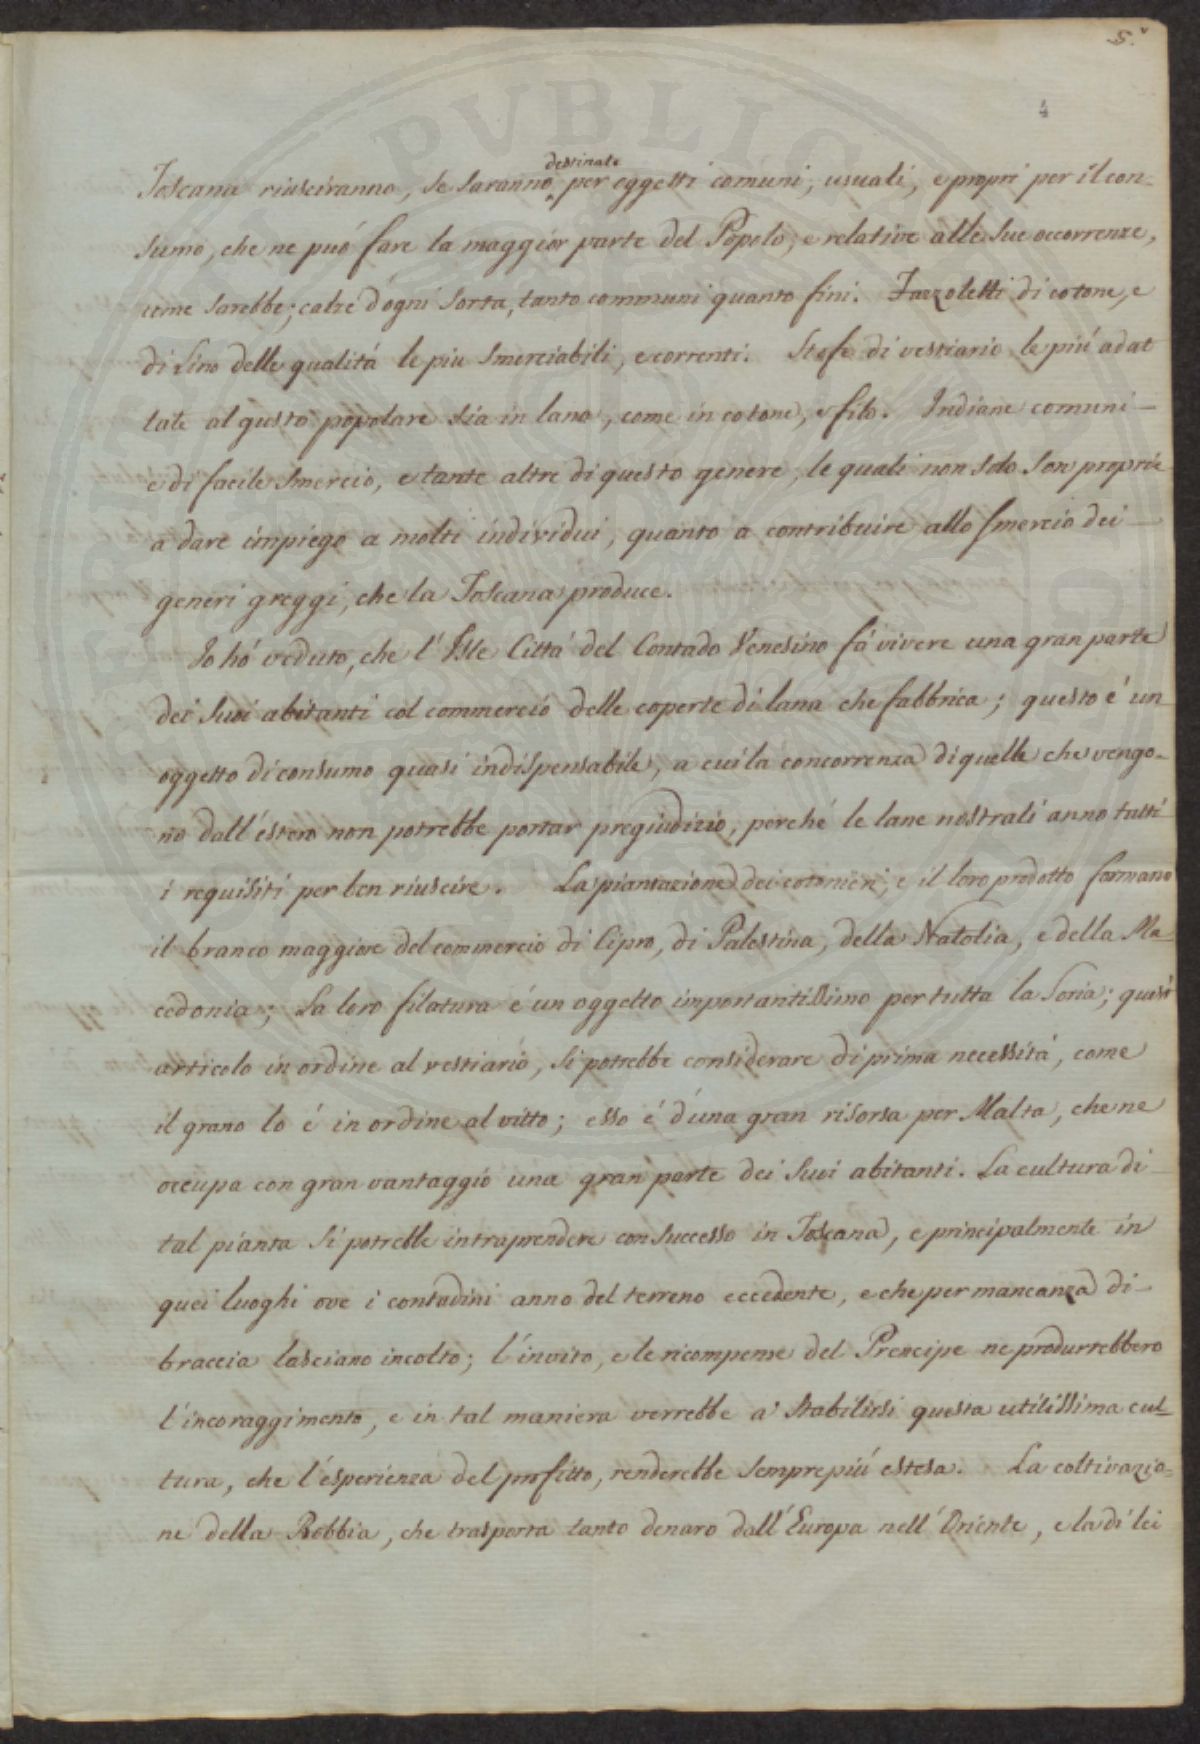 5.
4
destinate
Toscana riusciranno, se saranno per oggetti comuni, usuali, e propri per il con-
sumo, che ne può fare la maggior parte del Popolo, e relative alle sue occorrenze,
come sarebbe; calze d'ogni sorta, tanto communi quanto fini. Fazzoletti di cotone, e
di Lino delle qualitá le piu smerciabili, e correnti. Stofe di vestiario le piú adat
tate al gusto popolare sia in lana, come in cotone, e filo. Indiane comuni —
e di facile smercio, e tante altre di questo genere, le quali non solo son proprie
a dare impiego a molti individui, quanto a contribuire allo smercio dei —
generi greggi, che la Toscana produce.
Io hó veduto, che l'Isle Cittá del Contado Venesino fá vivere una gran parte
dei suoi abitanti col commercio delle coperte di lana che fabbrica; questo é un
oggetto di consumo quasi indispensabile, a cui la concorrenza di quelle che vengo-
no dall'estero non potrebbe portar pregiudizio, perché le lane nostrali anno tutti
i requisiti per ben riuscire. La piantazione dei cotonieri, e il loro prodotto formano
il branco maggiore del commercio di Cipro, di Palestina, della Natolia, e della Ma-
cedonia; La loro filatura é un oggetto importantissimo per tutta la Soria; questi
articolo in ordine al vestiario, si potrebbe considerare di prima necessitá, come
il grano lo é in ordine al vitto; esso é d'una gran risorsa per Malta, che ne
occupa con gran vantaggio una gran parte dei suoi abitanti. La cultura di —
tal pianta si potrebbe intraprendere con successo in Toscana, e principalmente in
quei luoghi ove i contadini anno del terreno eccedente, e che per mancanza di —
braccia lasciano incolto; l'invito, e le ricompense del Prencipe ne produrrebbero
l'incoraggimento, e in tal maniera verrebbe a' stabilirsi questa utilissima cul-
tura, che l'esperienza del profitto, renderebbe sempre piú estesa. La coltivazio-
ne della Robbia, che trasporta tanto denaro dall'Europa nell'Oriente, e la di lei